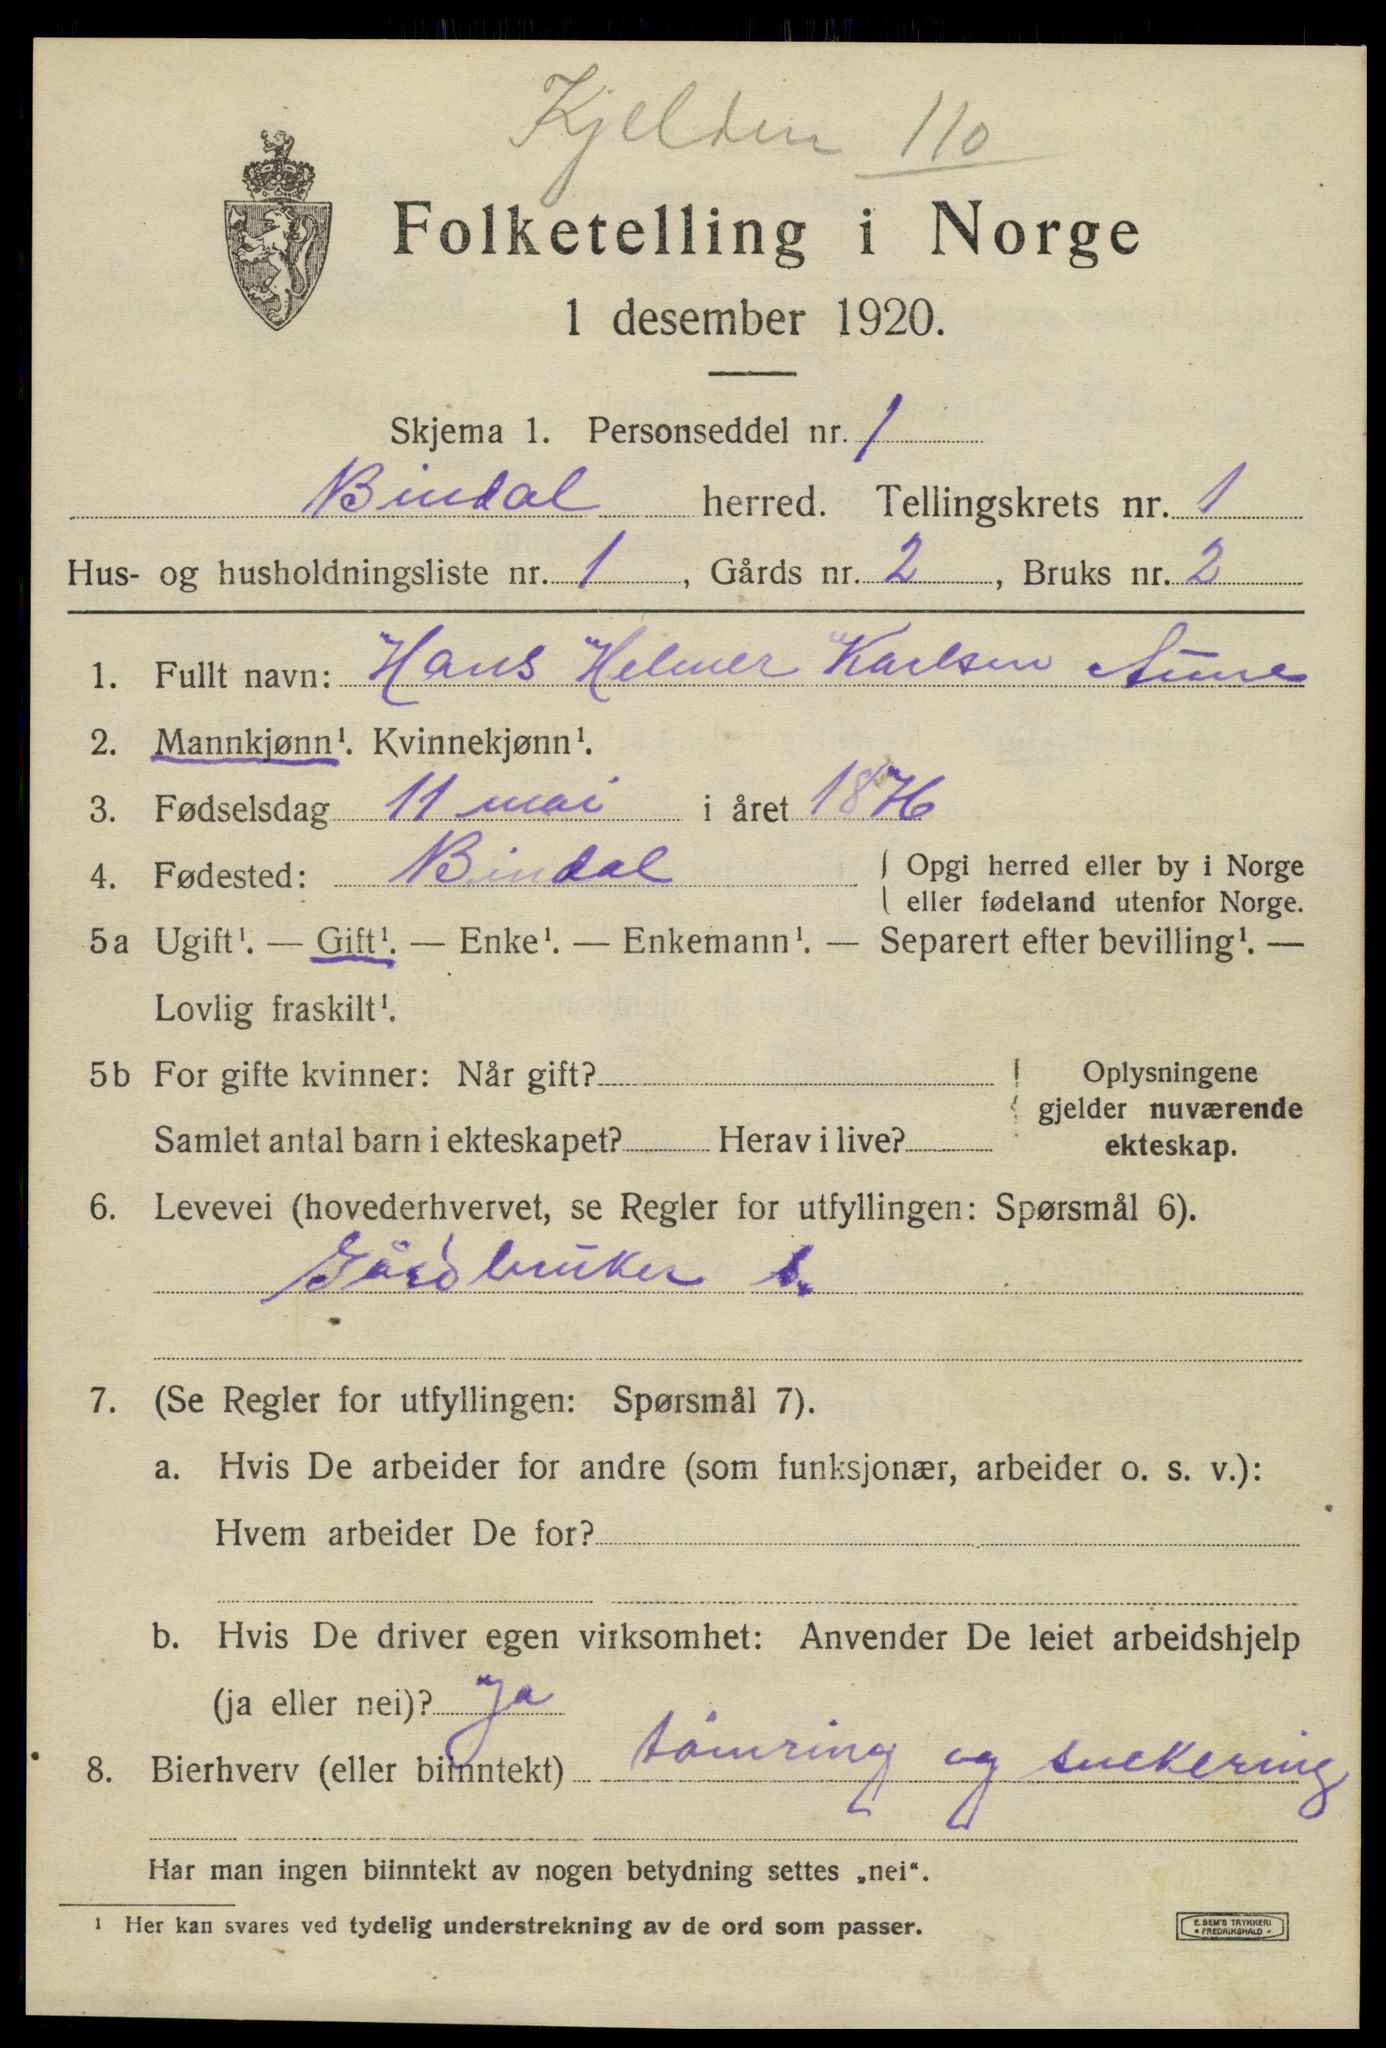 Kjelden 110
Folketelling i Norge
1 desember 1920.
Skjema 1. Personseddel nr. 1
Bindal herred. Tellingskrets nr. 1
Hus- og husholdningsliste nr. 1, Gårds nr. 2, Bruks nr. 2
1. Fullt navn: Hans Helmer Karlsen Aune
2. Mannkjønn¹. Kvinnekjønn¹.
3. Fødselsdag 11 mai i året 1876
4. Fødested: Bindal { Opgi herred eller by i Norge
eller fødeland utenfor Norge.
5a Ugift¹. — Gift¹. — Enke¹. — Enkemann¹. — Separert efter bevilling¹. —
Lovlig fraskilt¹.
5b For gifte kvinner: Når gift? Oplysningene
gjelder nuværende
Samlet antal barn i ekteskapet? Herav i live? ekteskap.
6. Levevei (hovederhvervet, se Regler for utfyllingen: Spørsmål 6).
Gårdbruker s.
7. (Se Regler for utfyllingen: Spørsmål 7).
a. Hvis De arbeider for andre (som funksjonær, arbeider o. s. v.):
Hvem arbeider De for?
b. Hvis De driver egen virksomhet: Anvender De leiet arbeidshjelp
(ja eller nei)? Ja
8. Bierhverv (eller biinntekt) tømring og snekering
Har man ingen biinntekt av nogen betydning settes „nei“.
¹ Her kan svares ved tydelig understrekning av de ord som passer.
E. SEM'S TRYKKERI
FREDRIKSHALD